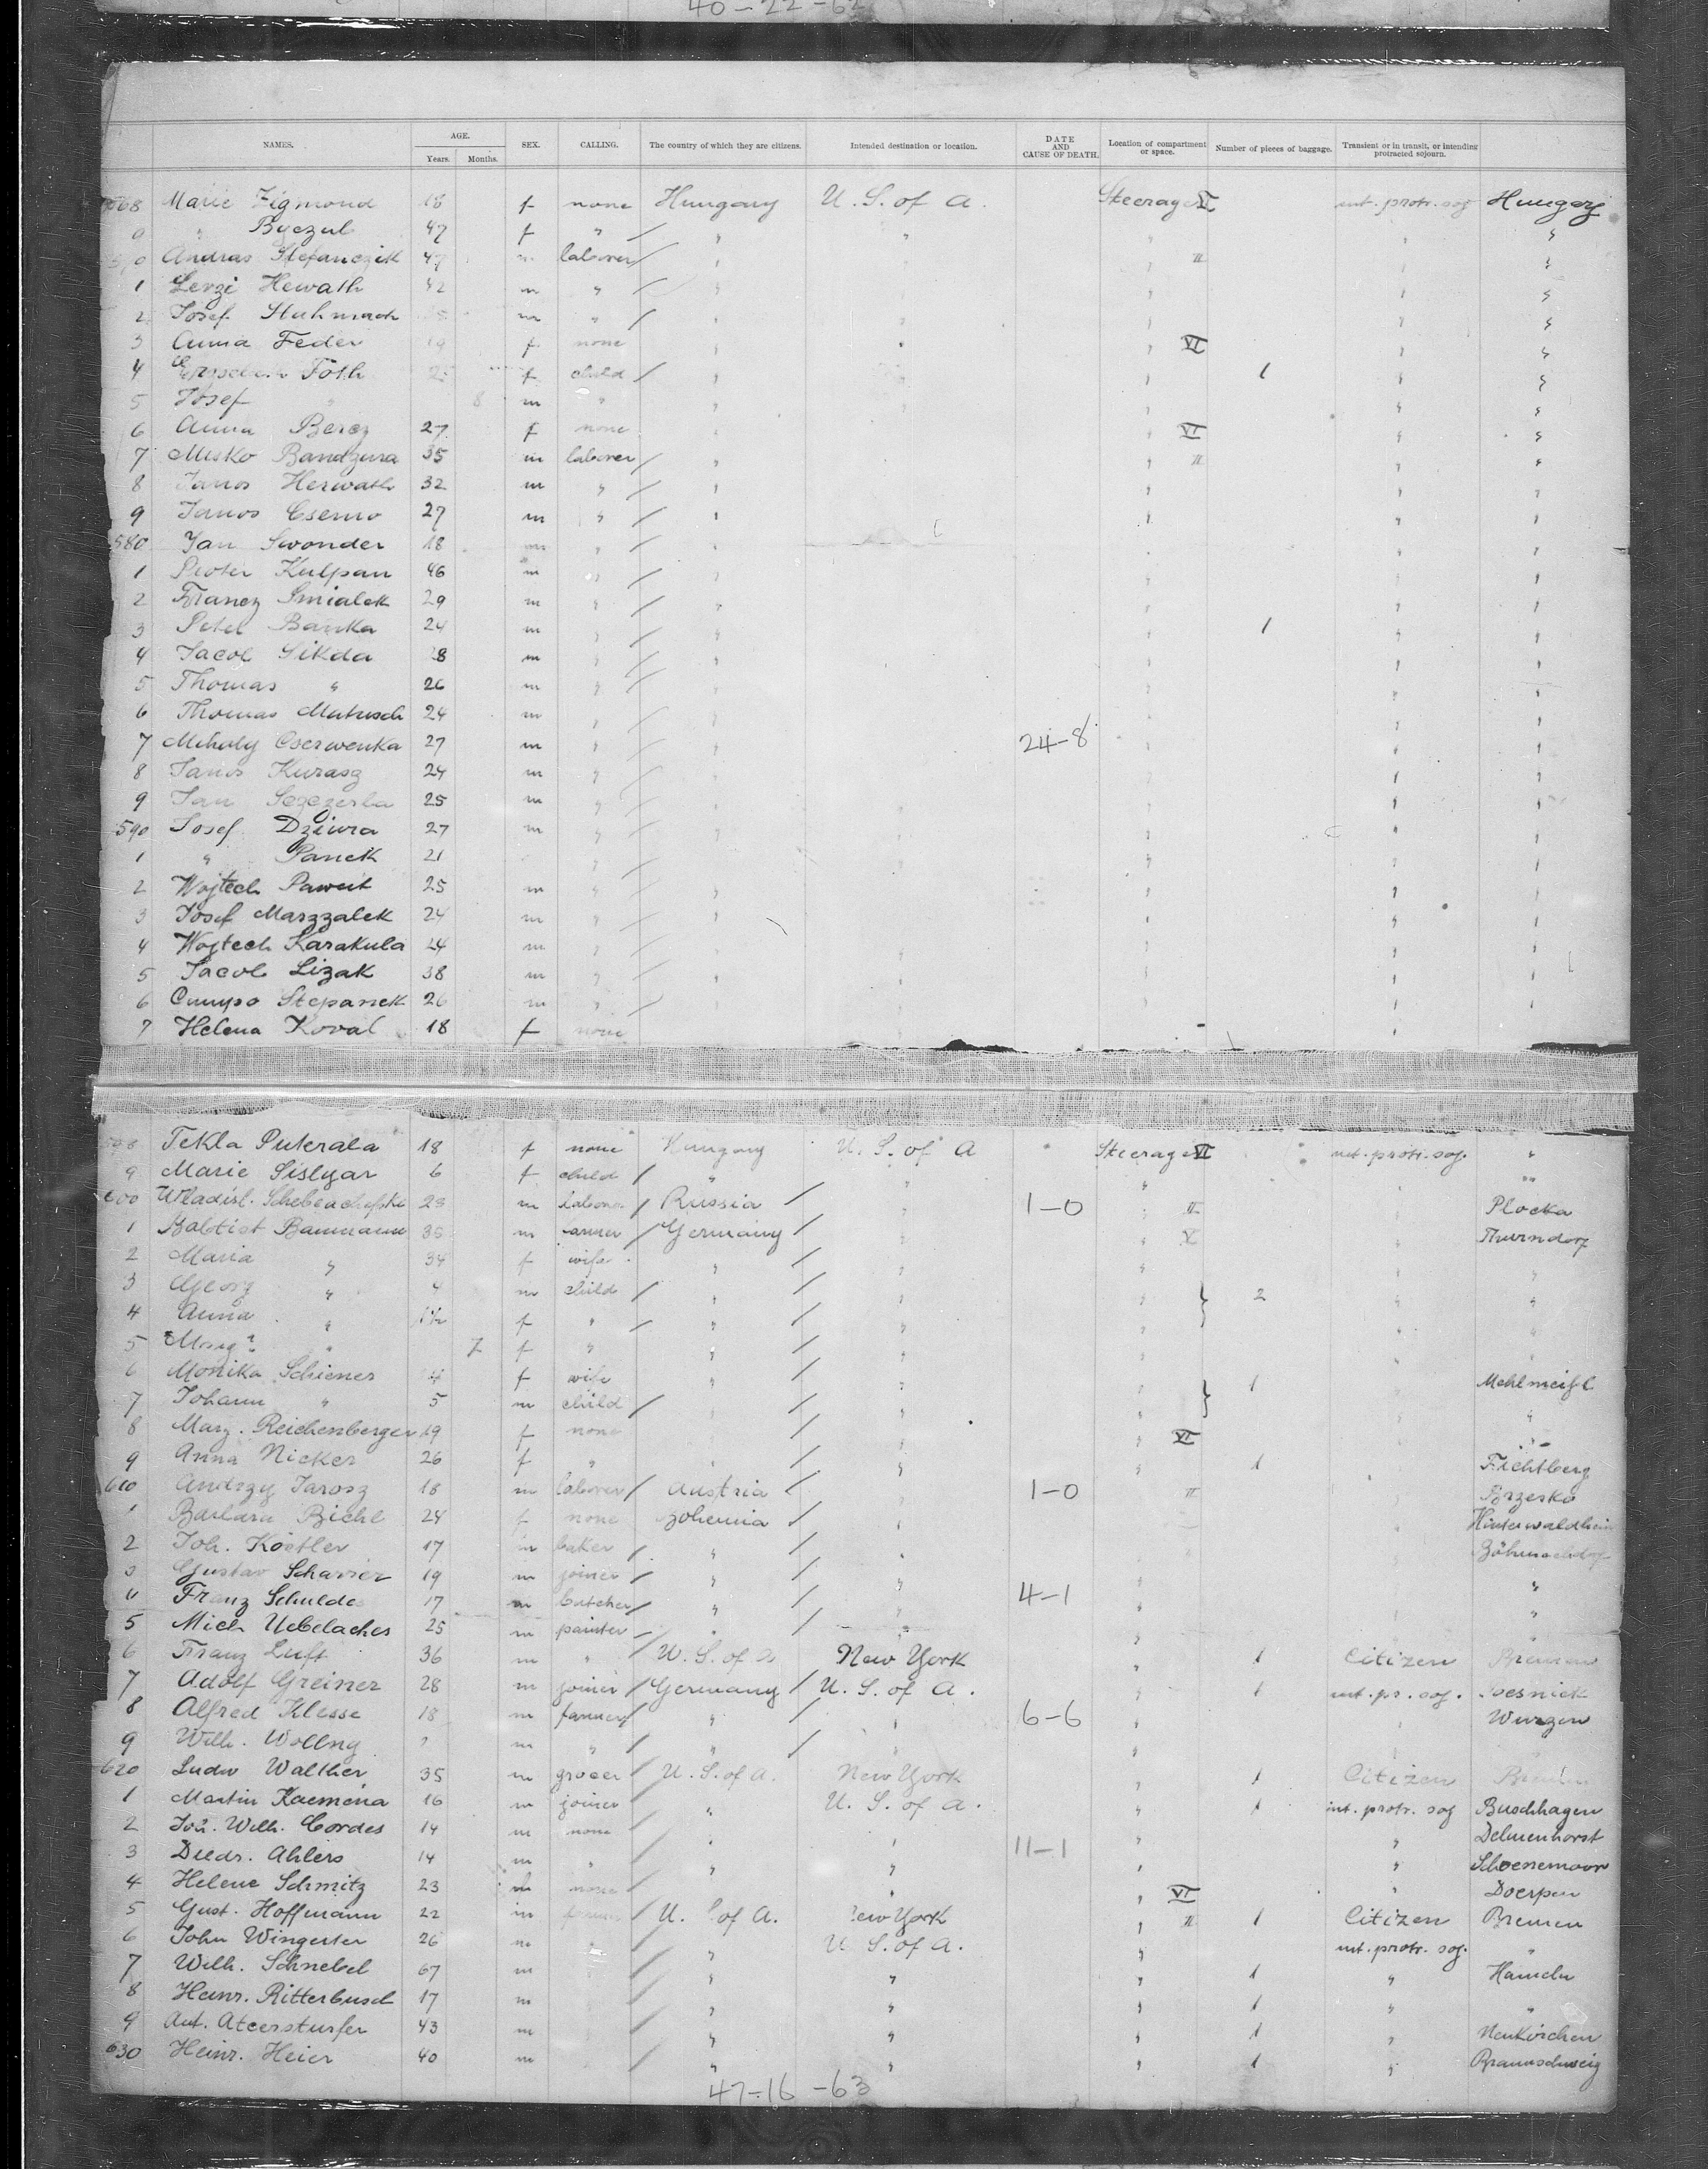 40-22-62
NAMES. AGE. Years. Months. SEX. CALLING. The country of which they are citizens. Intended destination or location. DATE AND CAUSE OF DEATH. Location of compartment or space. Number of pieces of baggage. Transient or in transit, or intending protracted sojourn.
568 Marie Zigmond 18 f none Hungary U. S. of A. Steerage VI int. protr. sog Hungary
" 47 f " / " " " " "
Andras Stefanczik 47 m laborer / " " II " "
1 Hewath 42 m " / " " " "
2 Josef m " / " " " " "
3 Anna Feder 19 f none " " " VI " "
4 Toth f child / " " 1 " "
5 Josef " 8 m " " " " " "
6 Anna Bercz 27 f none " " VI " "
7 Misko Bandzura 35 m laborer / " " II " "
8 Janos Herwath 32 m " / " " " "
9 Janos Csemo 27 m " / " " " "
580 Jan Swonder 18 m " / " " " "
1 Piotr Kulpan 46 m " / " " " "
2 Francz Smialek 29 m " / " " " "
3 Peter Banka 24 m " / " " 1 " "
4 Jacob Sikda 28 m " / " " "
5 Thomas " 26 m " / " " " "
6 Thomas Matusch 24 m " / " " " "
7 Mihaly Cserwenka 27 m " / " 24-8 " " "
8 Janos Kurasz 24 m " / " " " "
9 Jan Sczczerba 25 m " / " " " "
590 Josef Dziura 27 m " / " " " "
1 " Panek 21 " / " " "
2 Wojtech 25 m " / " " " "
3 Josef Marszalek 24 m " / " " " "
4 Wojtech Karakula 24 m " / " " " "
5 Jacob Lizak 38 m " / " " " " "
6 Stepanek 26 m " / " " " " "
7 Helena Koval 18 f none "
598 Tekla Puterala 18 f none Hungary U. S. of A Steerage VI int. protr. sog. "
9 Marie Sislyar 6 f child / " " " "
600 Wladisl. 23 m laborer / Russia / " 1-0 " II " Plocka
1 Babtist Baumann 35 m / Germany / " " V " Thurndorf
2 Maria " 34 f wife " " " "
3 Georg " 4 m child / " / " " } 2 " "
4 Anna " 1½ f " / " / " " "
5 Marg. " 7 f " " / " " "
6 Monika Schiener f wife " / " } 1 Mehlmeisl
7 Johann " 5 m child / " / " " "
8 Marg. Reichenberger 19 f none / " " VI "
9 Anna Nicker 26 f " " / " " 1 Fichtberg
610 Andrzy Jarosz 18 m laborer / Austria / " 1-0 II Brzesko
1 Barbara Biehl 24 f none Bohemia / "
2 Joh. Köstler 17 m baker / " / "
3 Gustav 19 m joiner / " / " " "
4 Franz Schulde 17 m butcher / " / " 4-1 " "
5 Mich Uebelacher 25 m painter / " / " " "
6 Franz Luft 36 m " / U. S. of A New York " 1 Citizen Bremen
7 Adolf Greiner 28 m joiner / Germany / U. S. of A. " 1 int. pr. sog.
8 Alfred Klesse 18 m / " / " 6-6 " " Wurzen
9 Wilh. m " / " / " " "
620 Ludw Walther 35 m grocer / U. S. of A. New York " 1 Citizen Bremen
1 Martin Kaemena 16 m joiner / " U. S. of A. " 1 int. protr. sog Buschhagen
2 Joh. Wilh. Cordes 14 m none / " " 11-1 " " Delmenhorst
3 Diedr. Ahlers 14 m " / " " " " Schoenemoor
4 Helene Schmitz 23 none / " " VI " Doerpen
5 Gust. Hoffmann 22 m / U. S. of A. New York " II 1 Citizen Bremen
6 John Wingerter 26 m / " U. S. of A. " int. protr. sog. "
7 Wilh. Schnebel 67 m / " " " 1 " Hameln
8 Heinr. Ritterbusch 17 m / " " " 1 " "
9 Ant. 43 m / " " " 1 " Neukirchen
630 Heinr. Heier 40 m / " " " 1 " Braunschweig
47-16-63